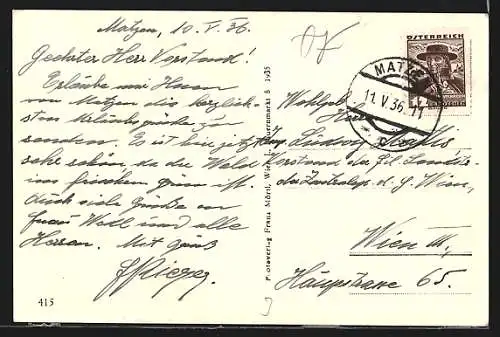 Matzen, 10. V. 36.
Geehrter Herr Vorstand!
Erlaube mir Ihnen
von Matzen die herzlich-
sten Urlaubsgrüße zu
senden. Es ist hier jetzt
sehr schön, da der Wald
im frischen Grün ist.
Auch viele Grüße an
Frau Wedl und alle
Herren. Mit Gruß
F. Rieger
415
Photoverlag Franz Mörtl, Wien 1935
ÖSTERREICH
MATZEN
11. V 36. 11
Wohlgeb.
Herrn
Ludwig
Vorstand der Fil.
der d. G. Wien,
Wien III,
Hauptstrasse 65.